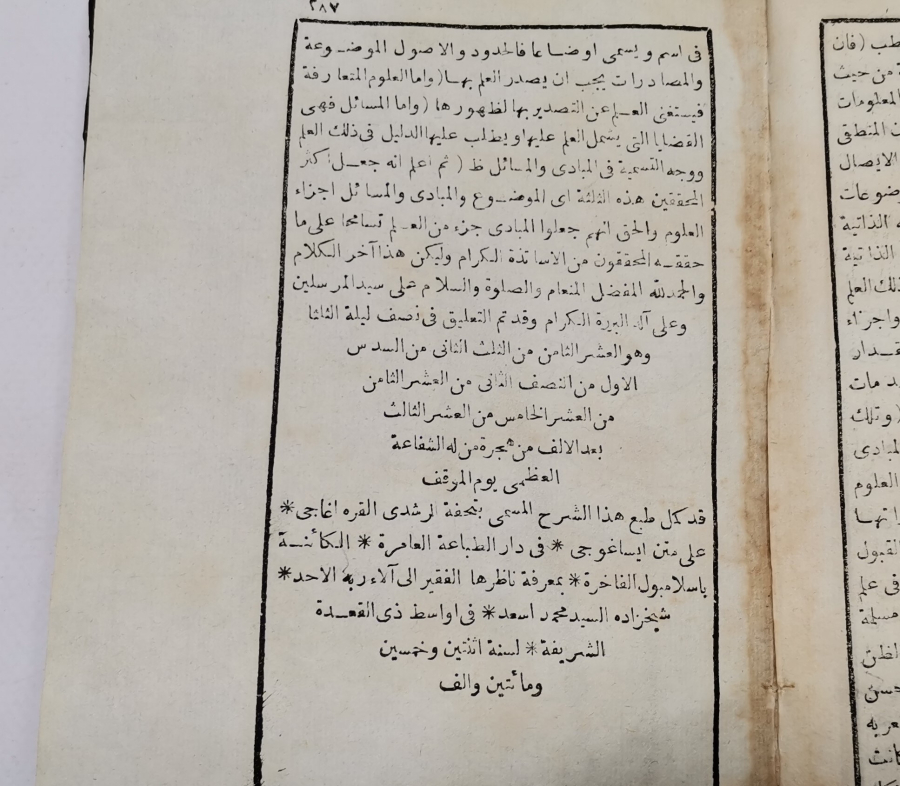 ٢٨٧
فى اسم ويسمى اوضاعا فالحدود والاصول الموضـوعة
والمصادرات يجب ان يصدر العلم بهـا (واما العلوم المتعارفة
فيستغنى العـلم عن التصدير بها لظهورها (واما المسائل فهى
القضايا التى يشمل العلم عليها ويطلب عليها الدليل فى ذلك العلم
ووجه التسمية فى المبادى والمسائل ظ (ثم اعلم انه جعـل اكثر
المحققين هذه الثلثة اى الموضـوع والمبادى والمسائل اجزاء
العلوم والحق انهم جعلوا المبادى جزء من العـلم تسامحا على ما
حققـه المحققون من الاساتذة الكرام وليكن هذا آخر الكلام
والحمدلله المفضل المنعام والصلوة والسلام على سيد المرسلين
وعلى آله البررة الكرام وقدتم التعليق فى نصف ليلة الثلثا
وهو العشر الثامن من الثلث الثانى من السدس
الاول من النصف الثانى من العشر الثامن
من العشر الخامس من العشر الثالث
بعد الالف من هجرة من له الشفاعة
العظمى يوم الموقف
قد كمل طبع هذا الشرح المسمى بتحفة الرشدى القره اغاجى *
على متن ايساغوجى * فى دار الطباعة العامرة * الكائنـة
باسلامبول الفاخرة * بمعرفة ناظرها الفقير الى آلاء ربه الاحد *
شيخزاده السيد محمد اسعد * فى اواسط ذى القعـدة
الشريفة * لسنة اثنتين وخمسين
ومأتين والف
(فان
من حيث
المعلومات
المنطقى
الايصال
الذاتية
الذاتية
ذلك العلم
واجزاء
وتلك
العلوم
القبول
فى علم